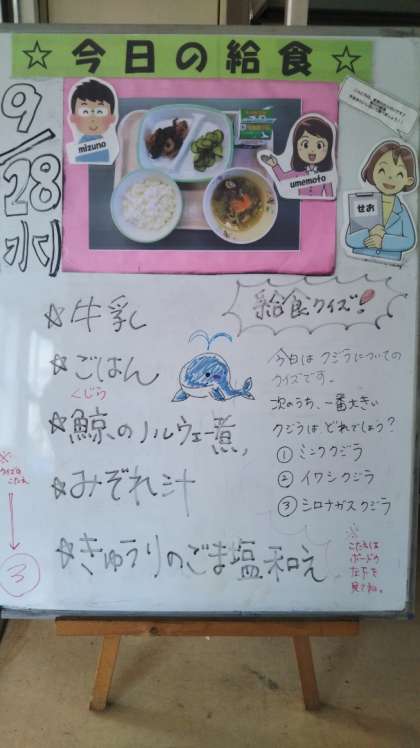 ☆今日の給食☆
9/28
水
mizuno
umemoto
せお
☆牛乳
☆ごはん
くじら
☆鯨のノルウェー煮
☆みぞれ汁
☆きゅうりのごま塩和え
給食クイズ!
今日はクジラについての
クイズです。
次のうち、一番大きい
クジラはどれでしょう?
①ミンククジラ
②イワシクジラ
③シロナガスクジラ
※
こたえは
ボードの
左下を
見てね。
※
クイズの
こたえ
③